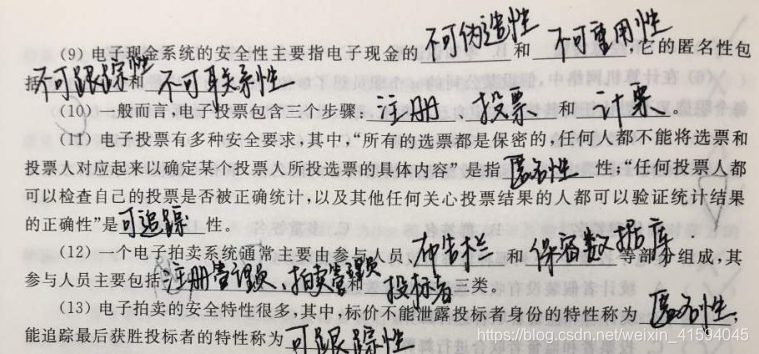 (9) 电子现金系统的安全性主要指电子现金的 不可伪造性 和 不可重用性, 它的匿名性包
括 不可跟踪性 和 不可联系性
(10) 一般而言,电子投票包含三个步骤: 注册 、 投票 和 计票 。
(11) 电子投票有多种安全要求,其中,“所有的选票都是保密的,任何人都不能将选票和
投票人对应起来以确定某个投票人所投选票的具体内容”是指 匿名性 性;“任何投票人都
可以检查自己的投票是否被正确统计,以及其他任何关心投票结果的人都可以验证统计结果
的正确性”是 可追踪 性。
(12) 一个电子拍卖系统通常主要由参与人员、 布告栏 和 保留数据库 等部分组成,其
参与人员主要包括 注册管理员、拍卖管理员 和 投标者 三类。
(13) 电子拍卖的安全特性很多,其中,标价不能泄露投标者身份的特性称为 匿名性,
能追踪最后获胜投标者的特性称为 可跟踪性
https://blog.csdn.net/weixin_41594045